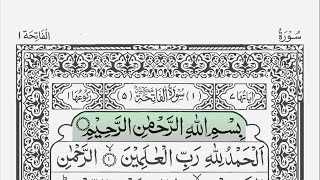 سُوْرَةُ
اَلْفَاتِحَة ١
اٰيَاتُهَا ٧ (١) سُوْرَةُ الْفَاتِحَةِ (٥) رُكُوْعُهَا ١
بِسْمِ اللّٰهِ الرَّحْمٰنِ الرَّحِيْمِ
اَلْحَمْدُ لِلّٰهِ رَبِّ الْعٰلَمِيْنَ ١ الرَّحْمٰنِ